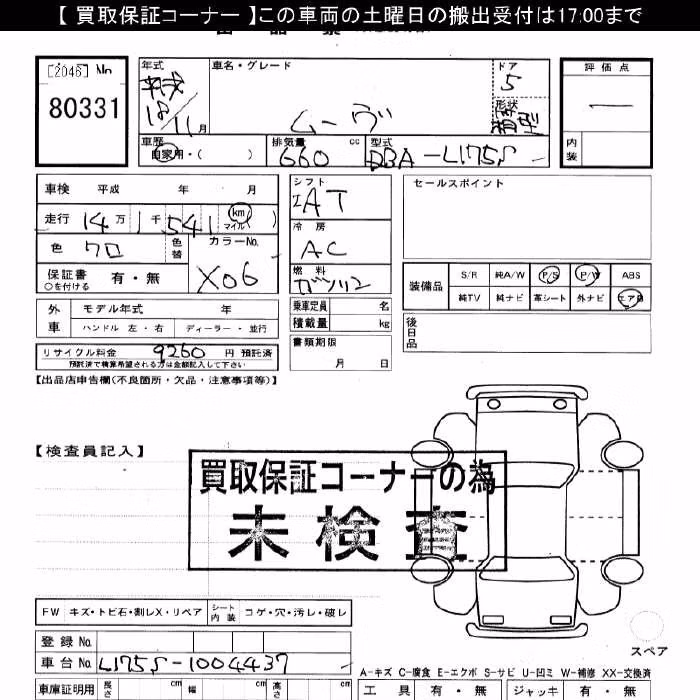 【 買取保証コーナー 】この車両の土曜日の搬出受付は17:00まで
[2046] No
80331
年式
平成
18/11月
車名・グレード
ムーヴ
ドア
5
形状
箱型
評価点
―
内装
車歴
自家用・( )
排気量
660 cc
型式
DBA-L175S
車検 平成 年 月
走行 14万 1千 541 km マイル
色 クロ
色替
カラーNo.
X06
保証書 有・無
○を付ける
シフト
IAT
冷房
AC
燃料
ガソリン
乗車定員 名
積載量 kg
書類期限
月 日
セールスポイント
装備品
S/R 純A/W P/S P/W ABS
純TV 純ナビ 革シート 外ナビ エアB
後日品
外車
モデル年式 年
ハンドル 左・右 ディーラー・並行
リサイクル料金 9260 円 預託済
預託済で精算希望される方は金額記入して下さい
【出品店申告欄(不良箇所・欠品・注意事項等)】
【検査員記入】
買取保証コーナーの為
未検査
FW キズ・トビ石・割レX・リペア
シート内装 コゲ・穴・汚レ・破レ
登録No.
車台No. L175S-1004437
車庫証明用 長さ cm 幅 cm 高さ cm
スペア
A-キズ C-腐食 E-エクボ S-サビ U-凹ミ W-補修 XX-交換済
工具 有・無 ジャッキ 有・無